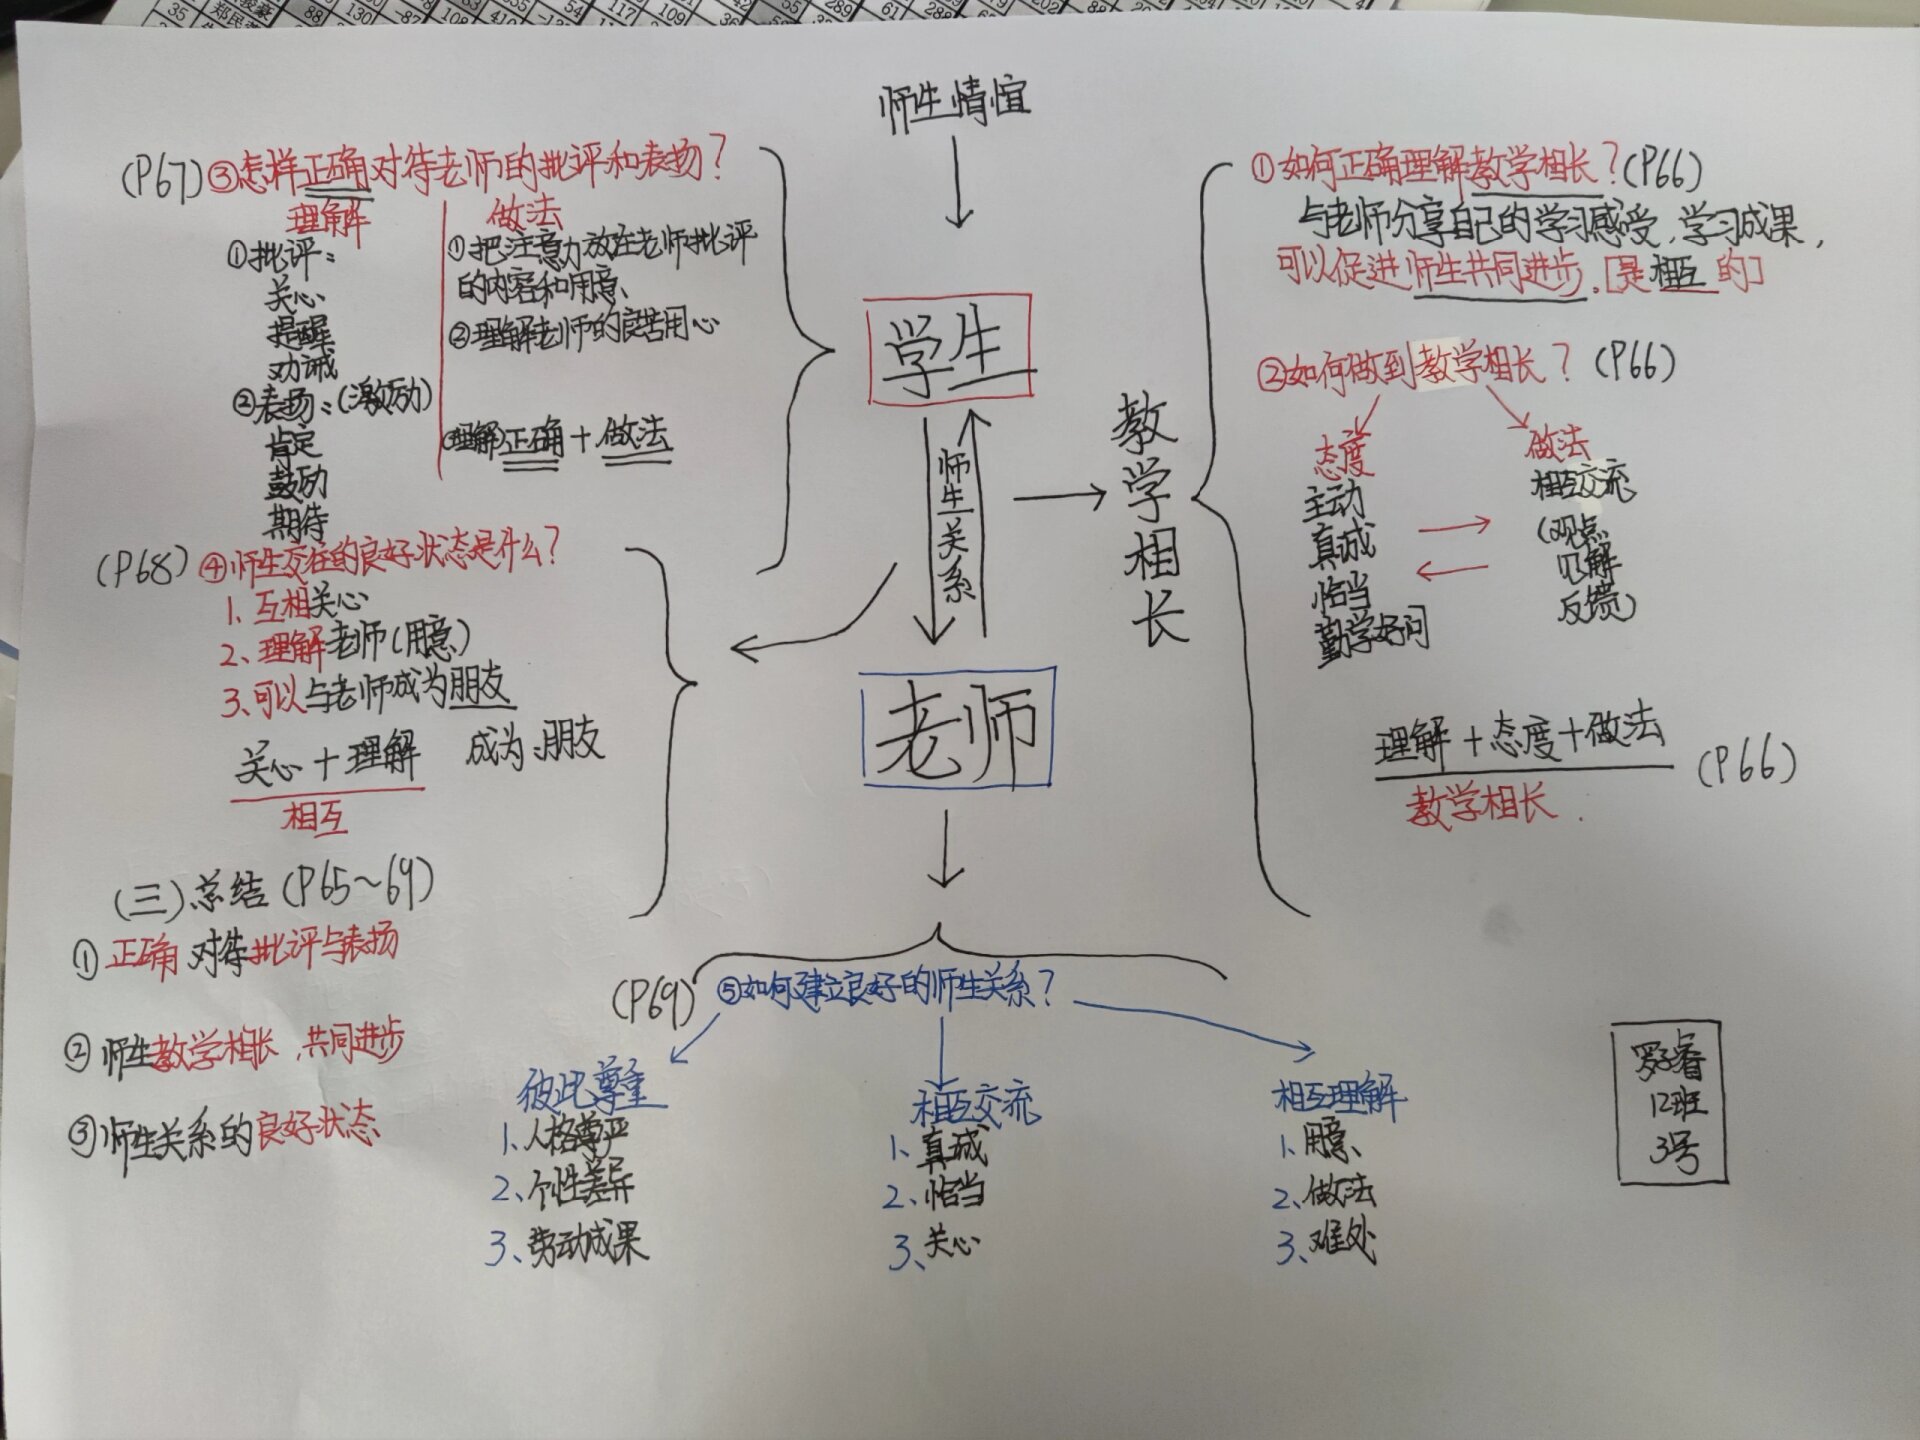 师生情谊
学生
师生关系
老师
教学相长
(P67)③怎样正确对待老师的批评和表扬？
理解
①批评：
关心
提醒
劝诫
②表扬：(激励)
肯定
鼓励
期待
做法
①把注意力放在老师批评
的内容和用意、
②理解老师的良苦用心
(理解)正确+做法
(P68)④师生交往的良好状态是什么？
1、互相关心
2、理解老师(用意)
3、可以与老师成为朋友
关心+理解 成为朋友
相互
(三)总结(P65~69)
①正确对待批评与表扬
②师生教学相长，共同进步
③师生关系的良好状态
①如何正确理解教学相长？(P66)
与老师分享自己的学习感受，学习成果，
可以促进师生共同进步.[是相互的]
②如何做到教学相长？(P66)
态度
主动
真诚
恰当
勤学好问
做法
相互交流
(观点
见解
反馈)
理解+态度+做法
(P66)
教学相长.
(P69)⑤如何建立良好的师生关系？
彼此尊重
1、人格尊严
2、个性差异
3、劳动成果
相互交流
1、真诚
2、恰当
3、关心
相互理解
1、用意、
2、做法
3、难处
12班
3号